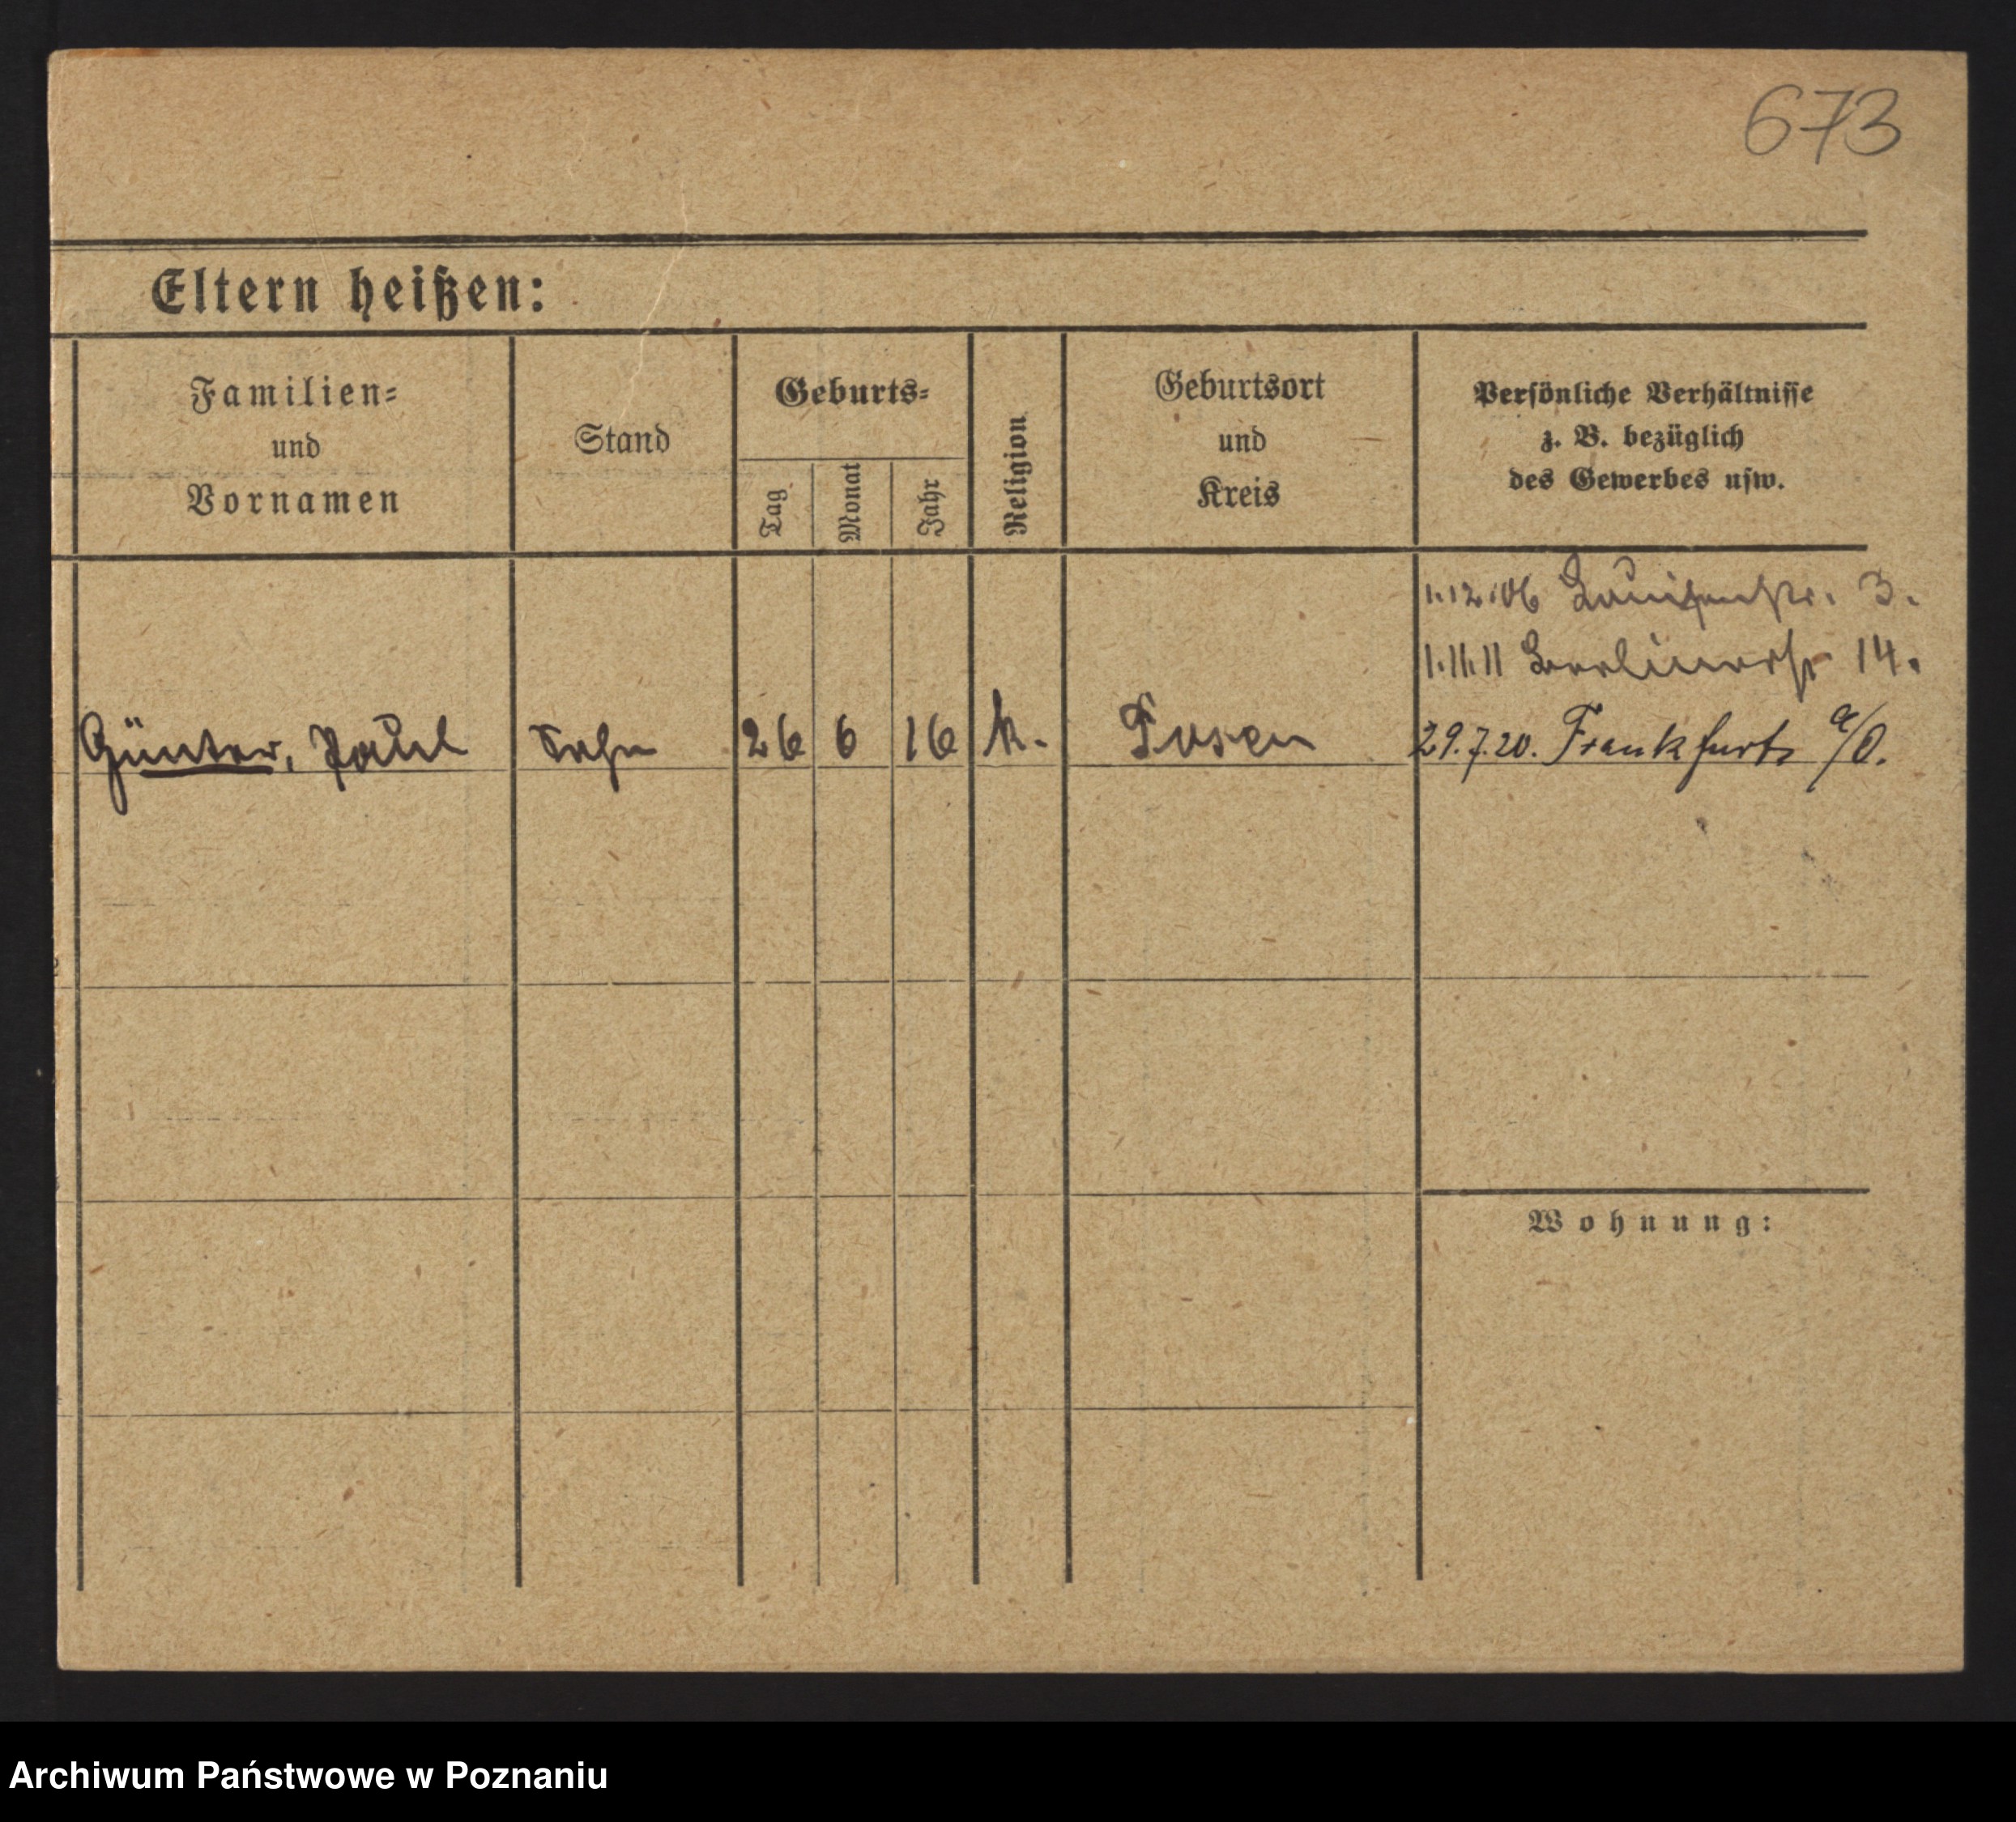 673
Eltern heißen:
Familien-
und
Vornamen
Stand
Geburts-
Tag
Monat
Jahr
Religion
Geburtsort
und
Kreis
Persönliche Verhältnisse
z. B. bezüglich
des Gewerbes usw.
1.12.06 Louisenstr. 3.
1.11.11 Berlinerstr 14.
Günter, Paul Sohn 26 6 16 k. Posen 29.7.20. Frankfurt a/O.
Wohnung:
Archiwum Państwowe w Poznaniu